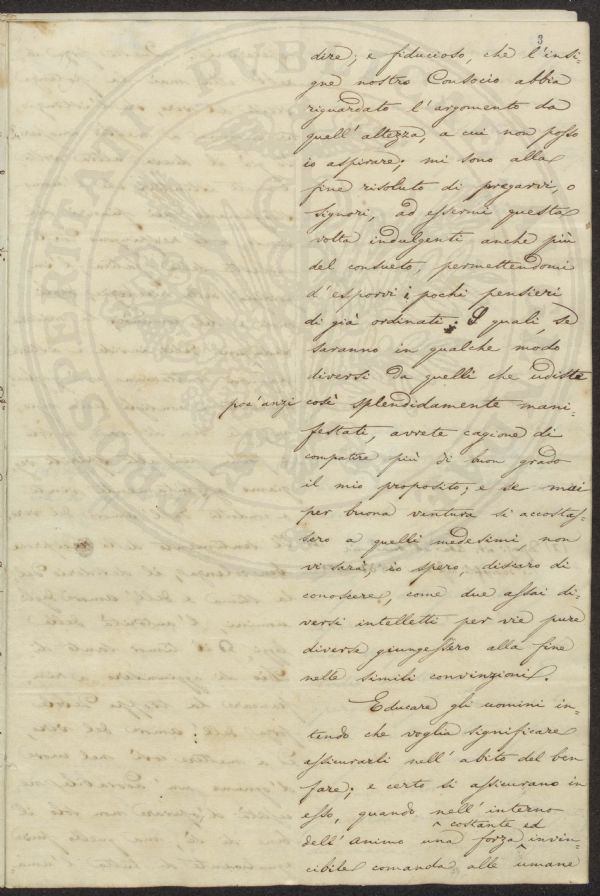 3
dire; e fiducioso, che l'insi-
gne nostro Consocio abbia
riguardato l'argomento da
quell'altezza, a cui non posso
io aspirare; mi sono alla
fine risoluto di pregarvi, o
Signori, ad essermi questa
volta indulgenti anche più
del consueto, permettendomi
d'esporvi i pochi pensieri
di già ordinati; I quali, se
saranno in qualche modo
diversi da quelli che udiste
poc'anzi così splendidamente mani-
festati, avrete cagione di
compatire più di buon grado
il mio proposito; e se mai
per buona ventura si accostas-
sero a quelli medesimi, non
vi sarà, io spero, discaro di
conoscere, come due assai di-
versi intelletti per vie pure
diverse giungessero alla fine
nelle simili convinzioni.
Educare gli uomini in-
tendo che voglia significare
assicurarli nell'abito del ben
fare; e certo si assicurano in
esso, quando nell'interno
costante ed
dell'animo una forza invin-
cibile comanda alle umane
PROSPERITATI PVB